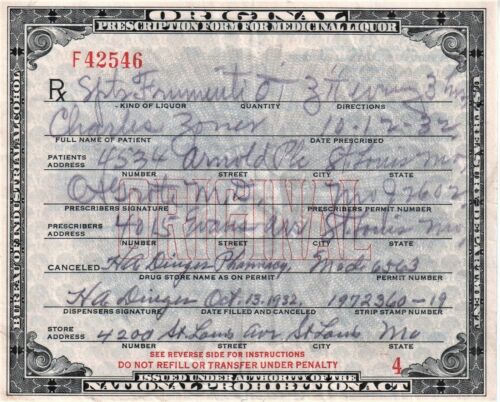 ORIGINAL
PRESCRIPTION FORM FOR MEDICINAL LIQUOR
F42546
Rx Spts Frumenti
KIND OF LIQUOR QUANTITY DIRECTIONS
Charles
FULL NAME OF PATIENT DATE PRESCRIBED
PATIENTS ADDRESS 4534 Arnold Plc St Louis Mo
NUMBER STREET CITY STATE
M.D.
PRESCRIBERS SIGNATURE PRESCRIBERS PERMIT NUMBER
PRESCRIBERS ADDRESS 4065 Evans ave St Louis Mo
NUMBER STREET CITY STATE
ORIGINAL
CANCELED HA Dinger Pharmacy
DRUG STORE NAME AS ON PERMIT PERMIT NUMBER
HA Dinger Oct. 13. 1932. 1972360-19
DISPENSERS SIGNATURE DATE FILLED AND CANCELED STRIP STAMP NUMBER
STORE ADDRESS 4200 St Louis ave St Louis Mo
NUMBER STREET CITY STATE
SEE REVERSE SIDE FOR INSTRUCTIONS
DO NOT REFILL OR TRANSFER UNDER PENALTY 4
ISSUED UNDER AUTHORITY OF THE
NATIONAL PROHIBITION ACT
BUREAU OF INDUSTRIAL ALCOHOL
U.S. TREASURY DEPARTMENT